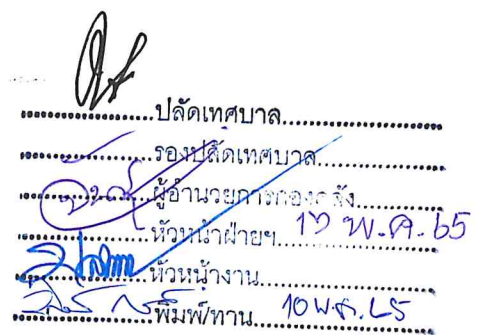 ปลัดเทศบาล
รองปลัดเทศบาล
ผู้อำนวยการกองคลัง
หัวหน้าฝ่ายฯ พ.ค. 65
หัวหน้างาน
พิมพ์/ทาน 10 พ.ค. 65